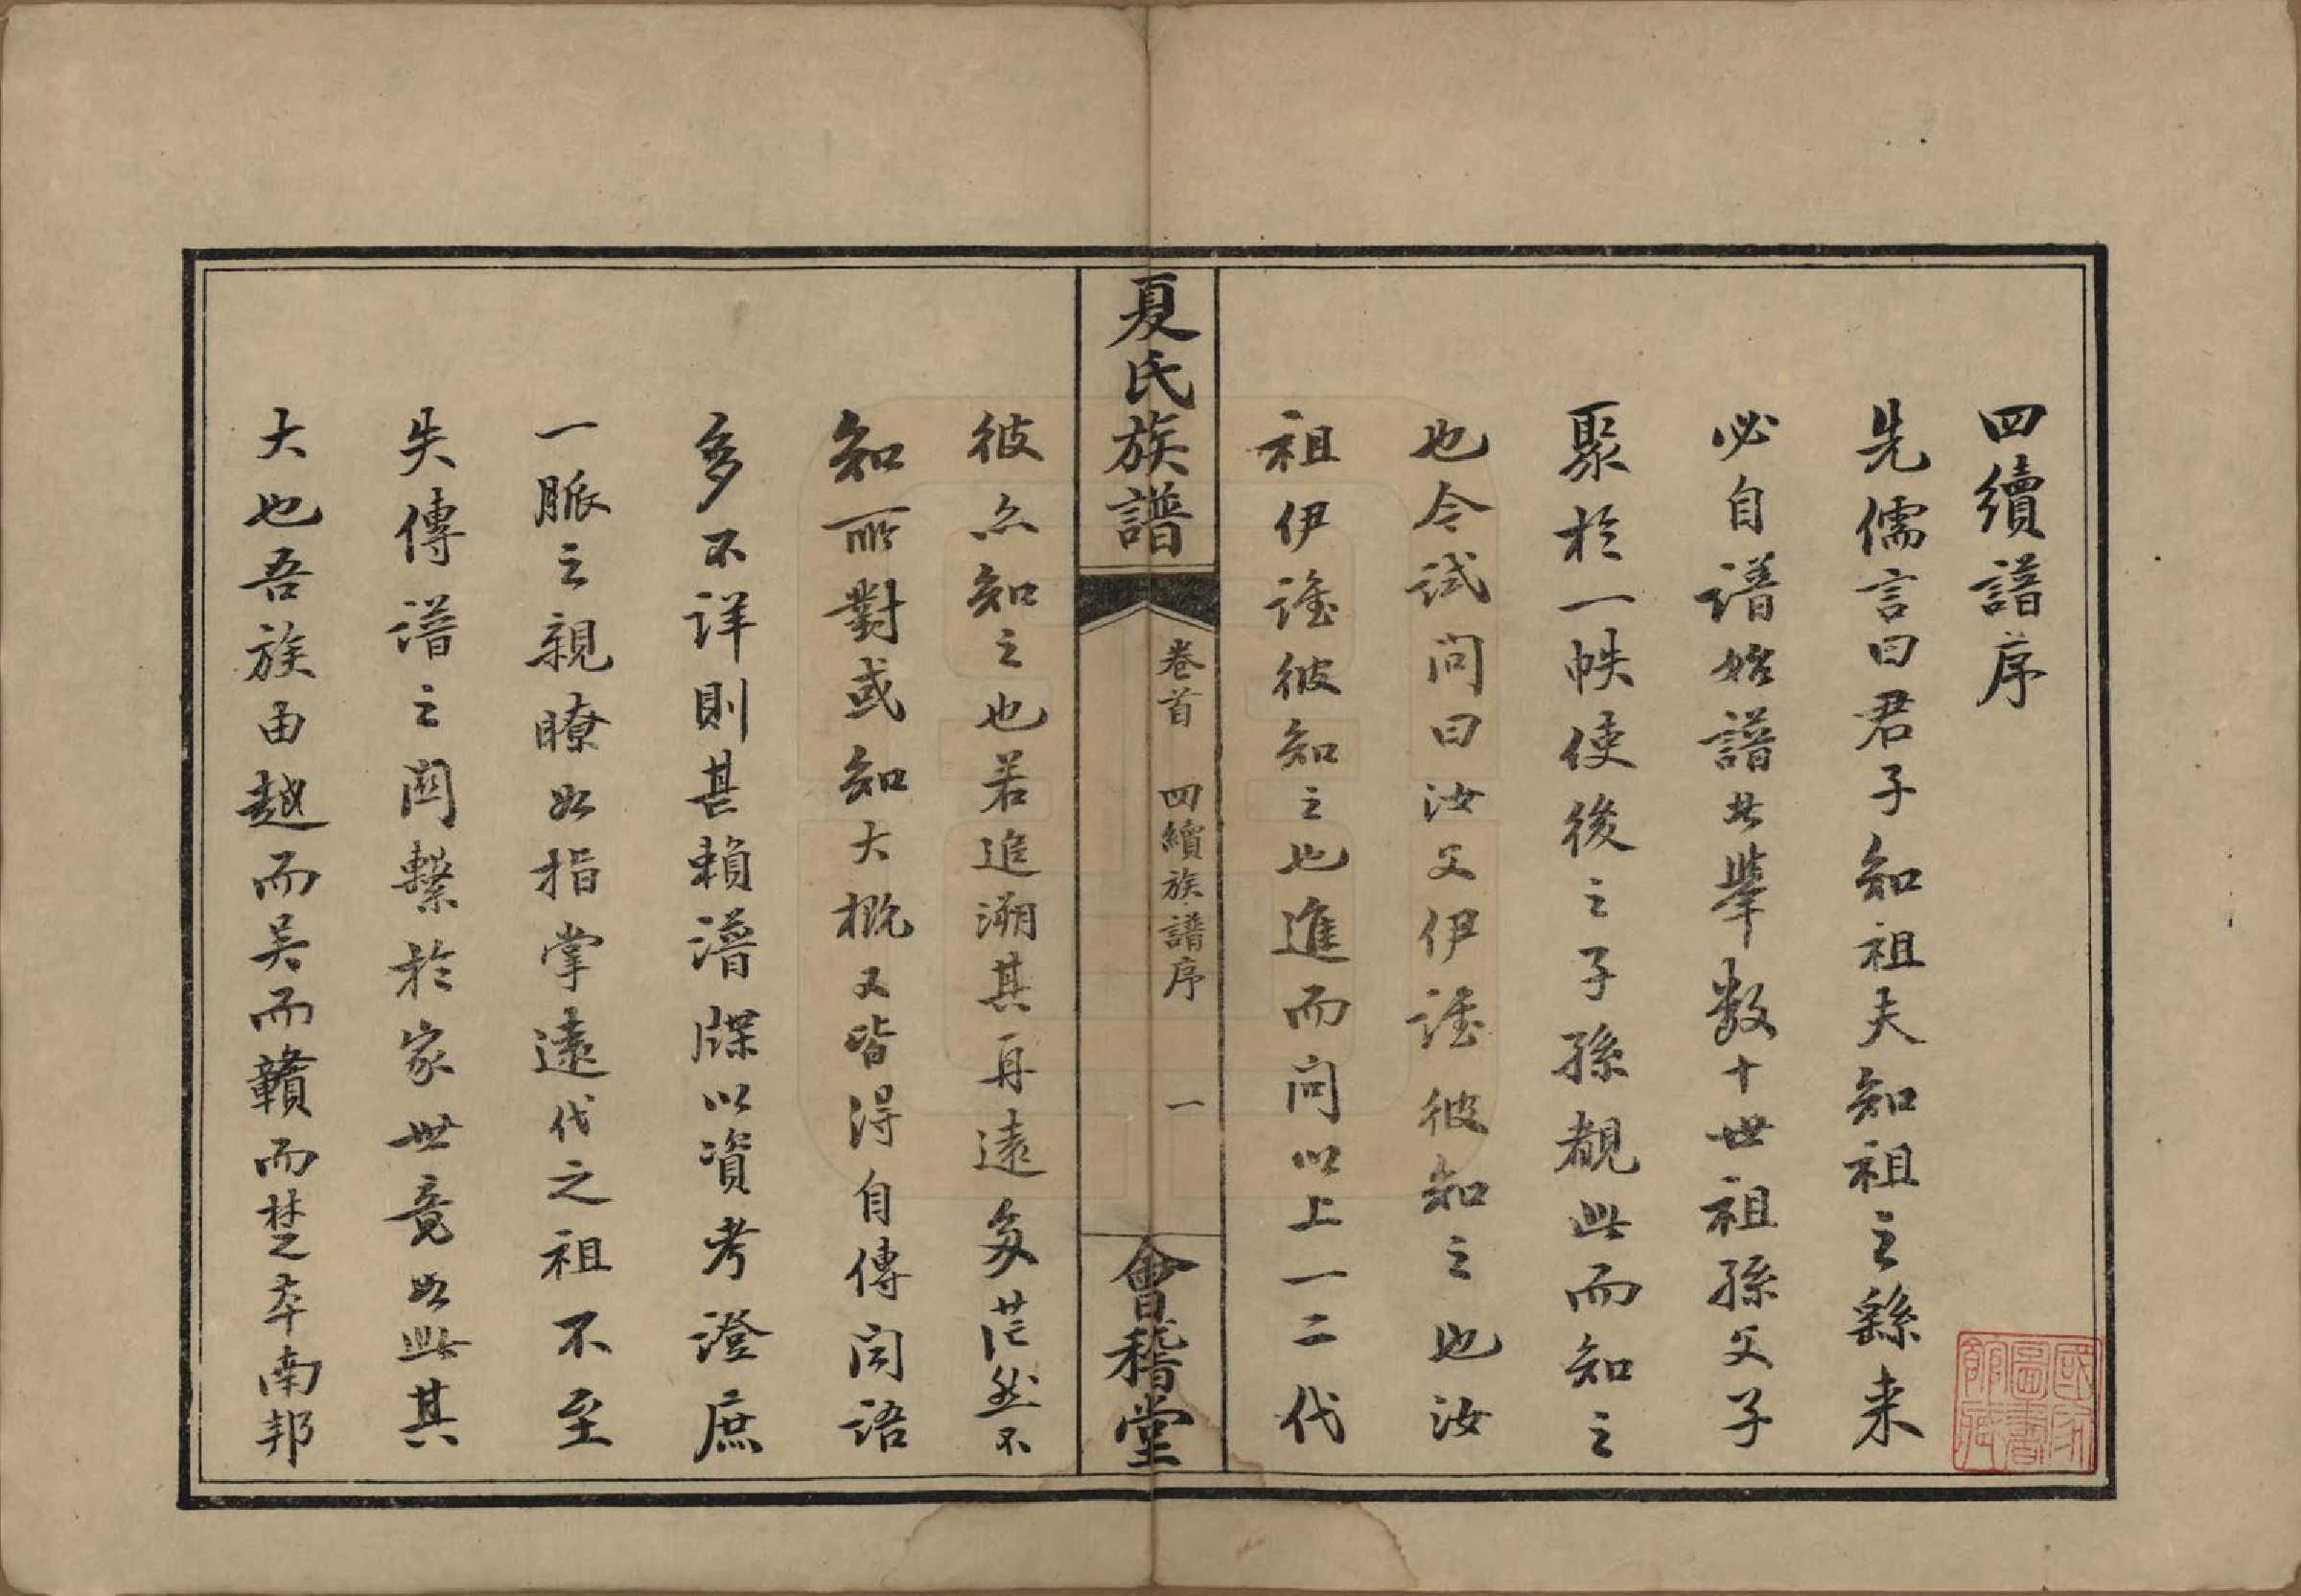 四續譜序
先儒言曰君子知祖夫知祖之繇来
必自譜始譜者舉数十世祖孫父子
聚於一帙使後之子孫覩此而知之
也今試问曰汝父伊誰彼知之也汝
祖伊誰彼知之也進而问以上一二代
夏氏族譜
卷首 四續族譜序 一
會稽堂
彼亦知之也若進溯其再遠多茫然不
知所對或知大概又皆得自傳闻語
多不详則甚賴譜牒以資考證庶
一脈之親瞭如指掌遠代之祖不至
失傳譜之関繫於家世竟如此其
大也吾族由越而吴而贛而楚卒南邦
國家圖書館藏